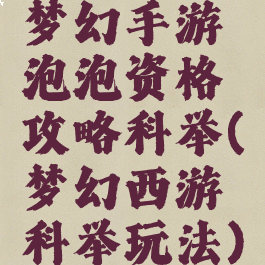 梦幻手游
泡泡资格
攻略科举(
梦幻西游
科举玩法)